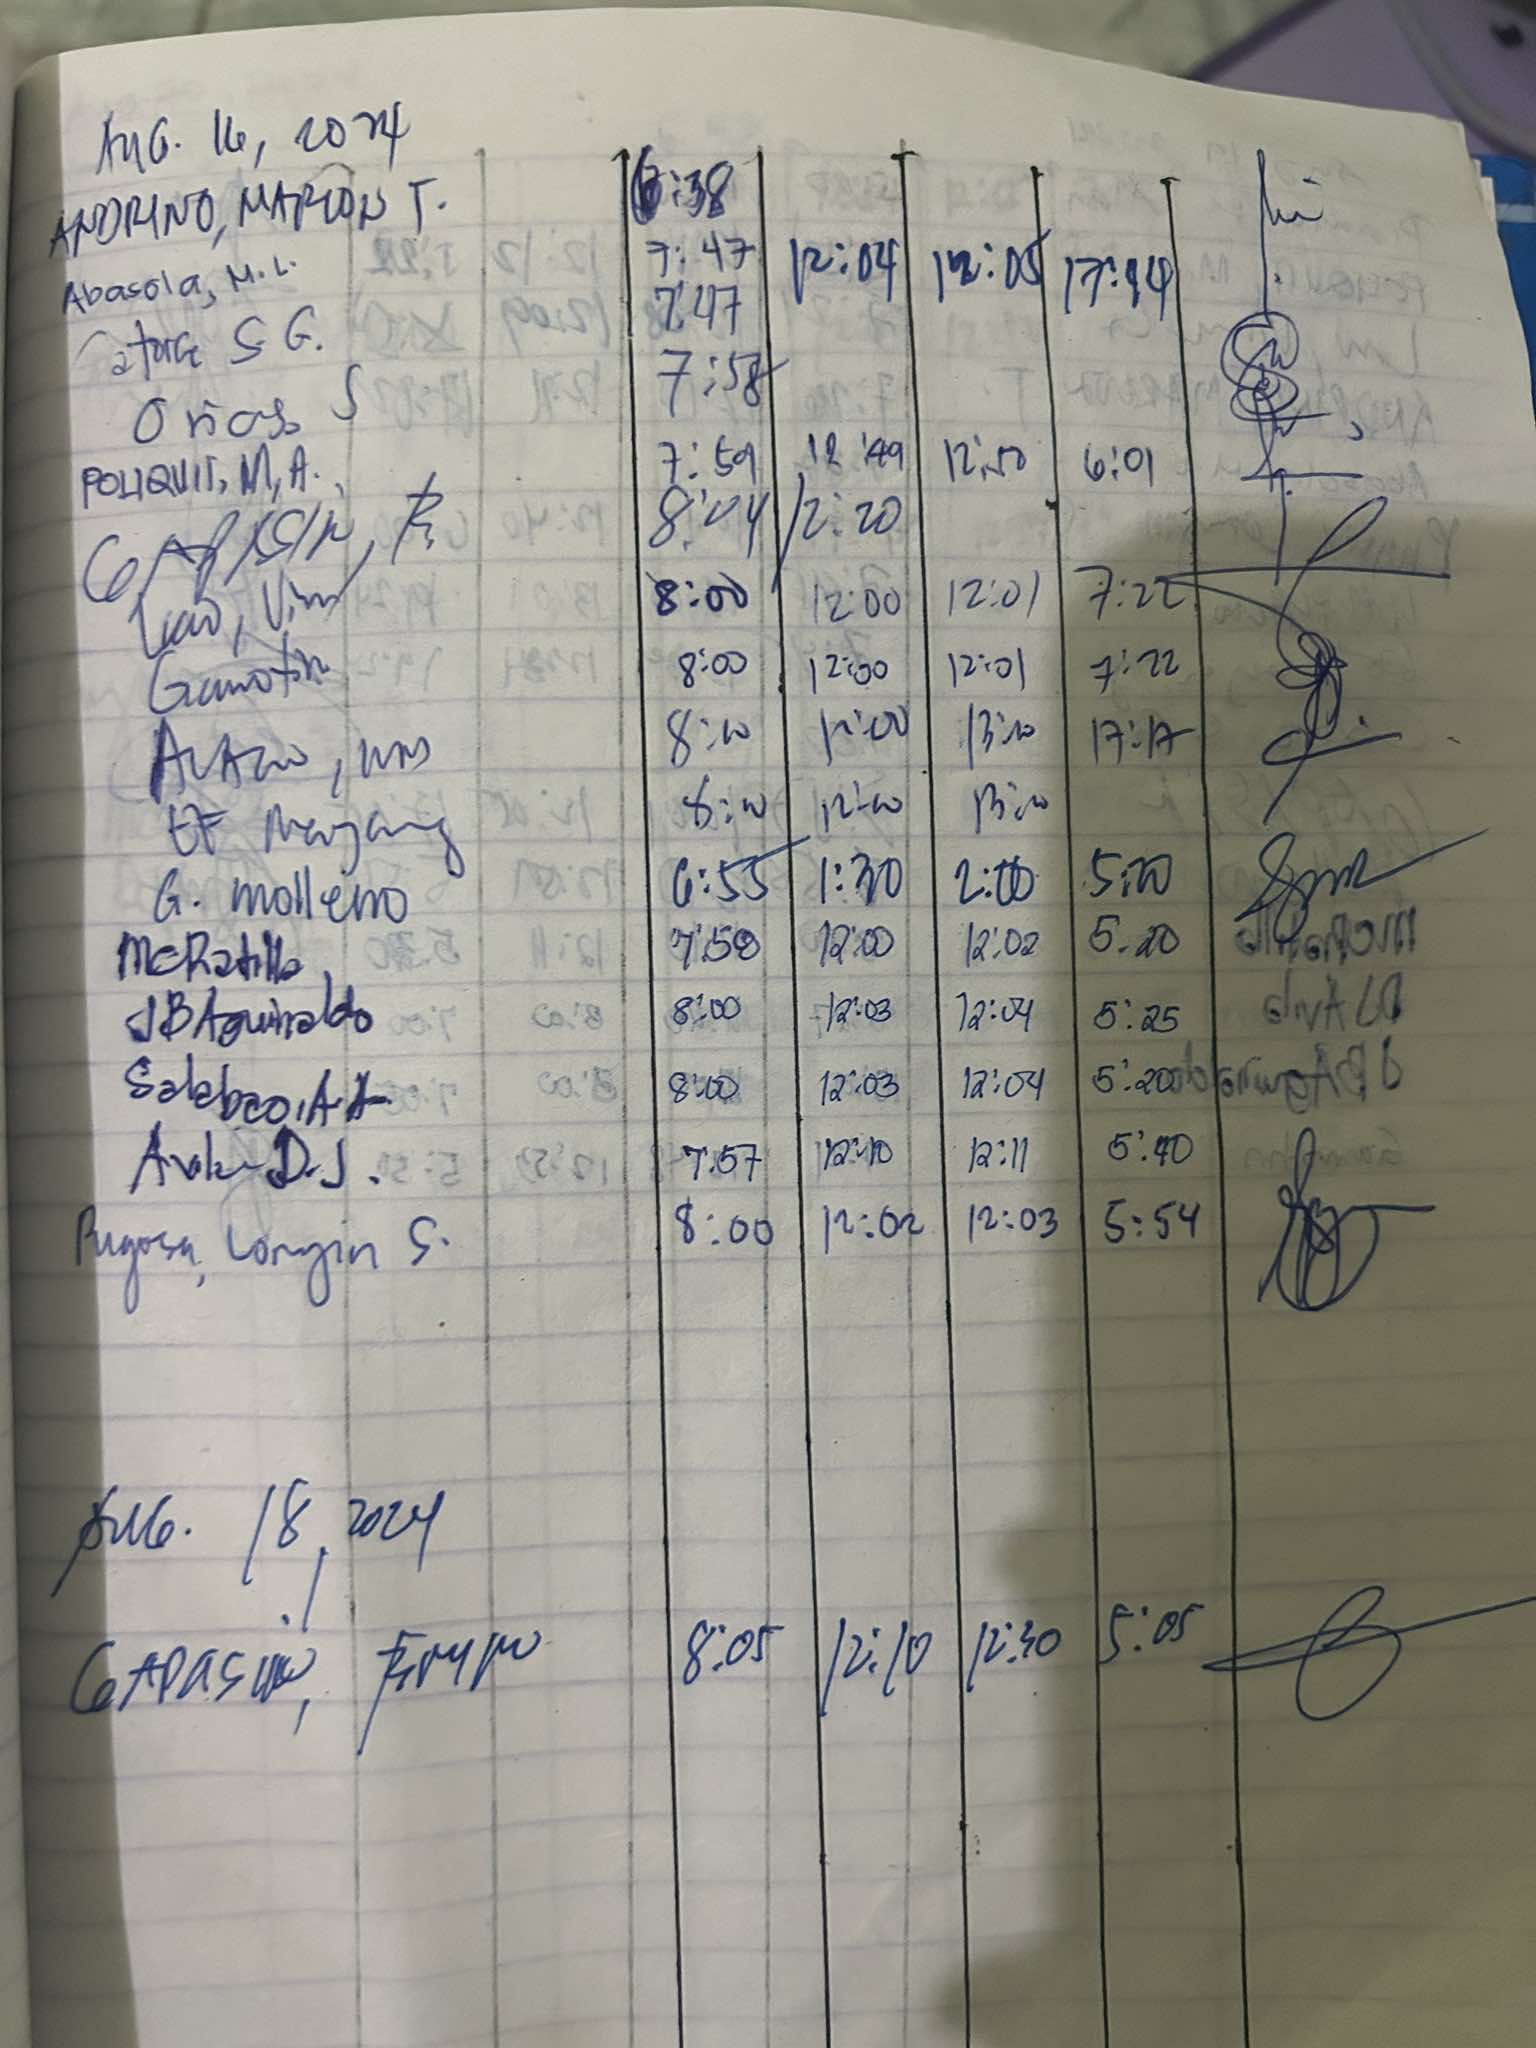 AUG. 16, 2024
ANDRINO, MARLON T. 6:38
Abasola, M.L. 7:47 12:04 12:05 17:44
S.G. 7:47
Orias, S 7:58
POLIQUIT, M, A. 7:59 12:49 12:50 6:01
8:04 12:20
8:00 12:00 12:01 7:22
Gamotin 8:00 12:00 12:01 7:22
8:10 12:00 13:10 17:17
8:10 12:10 13:10
G. Molleno 6:55 1:30 2:00 5:20
McRatilla 7:58 12:00 12:02 5:20
JB Aguinaldo 8:00 12:03 12:04 5:25
Salabao, A.A 8:00 12:03 12:04 5:20
Avila D.J. 7:57 12:10 12:11 5:40
Pugosa, Longin S. 8:00 12:02 12:03 5:54
AUG. 18, 2024
GAPASIN, 8:05 12:10 12:30 5:05